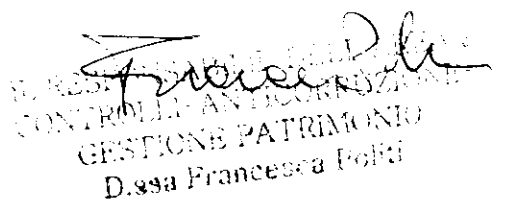 IL RESPONSABILE DELL'AREA
CONTROLLI ANTICORRUZIONE
GESTIONE PATRIMONIO
D.ssa Francesca Politi